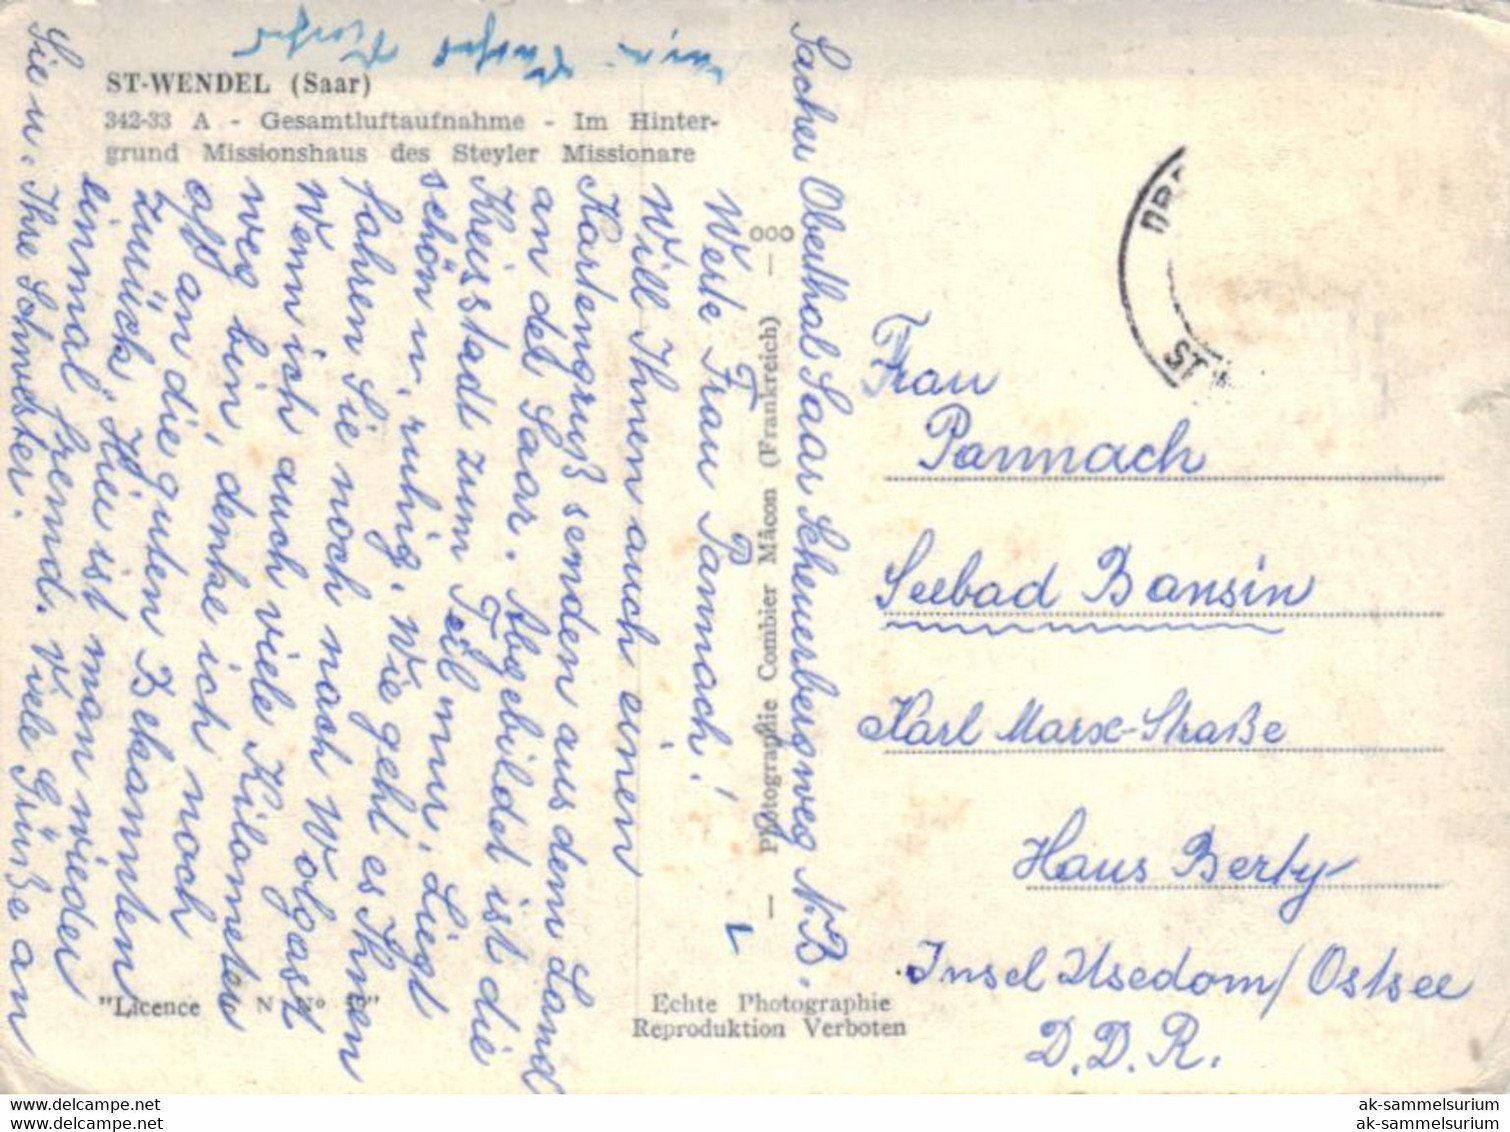 ST-WENDEL (Saar)
342-33 A - Gesamtluftaufnahme - Im Hinter-
grund Missionshaus des Steyler Missionare
Werte Frau Pannach!
Will Ihnen auch einen
Kartengruß senden aus dem Land
an der Saar. Abgebildet ist die
Kreisstadt zum Teil nur. Liegt
schön u. ruhig. Wie geht es Ihnen
fahren Sie noch nach Wolgast
Wenn ich auch viele Kilometer
weg bin, denke ich noch
oft an die guten Bekannten
zurück. Hier ist man wieder
einmal fremd. Viele Grüße an
Sie u. Ihre Schwester.
Sacher Oberthal Saar Scheuerbergweg N.B.
T P L
ooo
Photographie Combier Mâcon (Frankreich)
"Licence N N°
Echte Photographie
Reproduktion Verboten
ST
Frau
Pannach
Seebad Bansin
Karl Marx-Straße
Haus Berty
Insel Usedom/Ostsee
D.D.R.
www.delcampe.net
www.delcampe.net
ak-sammelsurium
ak-sammelsurium